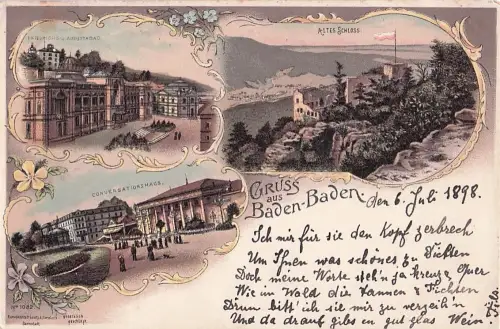 FRIEDRICHS- U. AUGUSTABAD
ALTES SCHLOSS
CONVERSATIONSHAUS.
GRUSS
aus
BADEN-BADEN
den 6. Juli 1898.
Ich mir für sie den Kopf zerbrech
Um Ihnen was schönes zu Dichten
Doch meine Worte steh'n ja kreuz u Quer
Wie im Wald die Tannen u Fichten
Drum bitt' ich sie mir zu verzeih'n
Und da drauf gibs ein gut glas Wein
No 1089